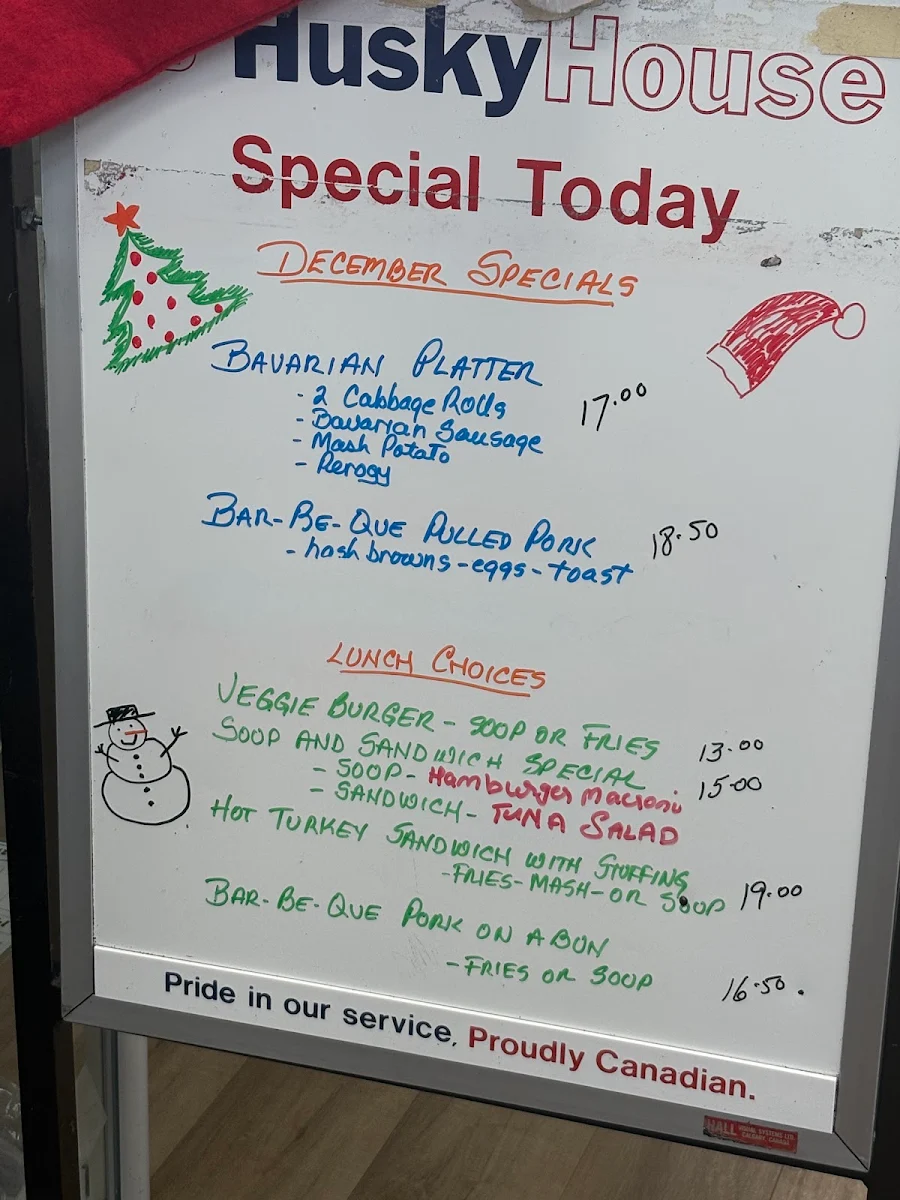 HuskyHouse
Special Today
DECEMBER SPECIALS
BAVARIAN PLATTER
- 2 Cabbage Rolls
17.00
- Bavarian Sausage
- Mash Potato
- Perogy
BAR-BE-QUE PULLED PORK 18.50
- hash browns - eggs - toast
LUNCH CHOICES
VEGGIE BURGER - SOUP OR FRIES 13.00
SOUP AND SANDWICH SPECIAL 15.00
- SOUP - Hamburger Macroni
- SANDWICH - TUNA SALAD
HOT TURKEY SANDWICH WITH STUFFING
- FRIES - MASH - OR SOUP 19.00
BAR-BE-QUE PORK ON A BUN
- FRIES OR SOUP 16.50.
Pride in our service, Proudly Canadian.
HALL VISUAL SYSTEMS LTD.
CALGARY, CANADA